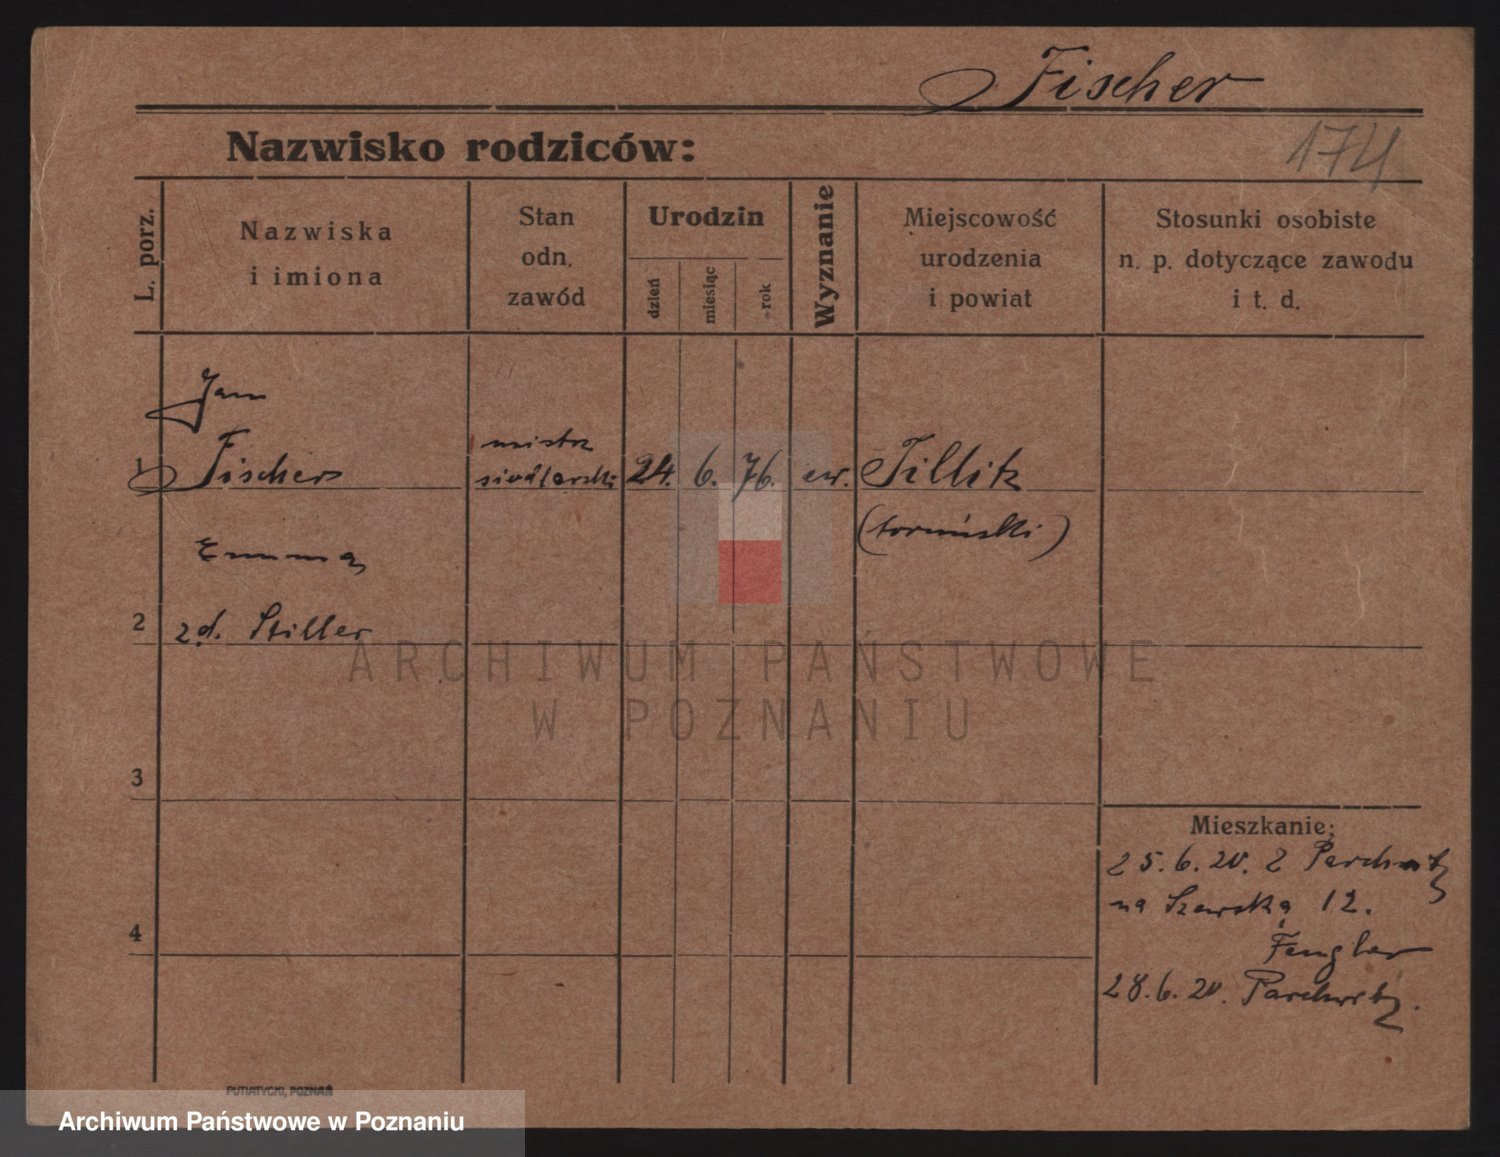 Fischer
Nazwisko rodziców:
174
L. porz.
Nazwiska
i imiona
Stan
odn.
zawód
Urodzin
dzień
miesiąc
rok
Wyznanie
Miejscowość
urodzenia
i powiat
Stosunki osobiste
n. p. dotyczące zawodu
i t. d.
Jan
1 Fischer
mistrz
siodlarski
24. 6. 76. ew. Tillitz
(toruński)
Emma
2 zd. Stiller
ARCHIWUM PAŃSTWOWE
W POZNANIU
3
4
Mieszkanie:
25. 6. 20. z Parchwitz
na Szewską 12.
Fengler
28. 6. 20. Parchwitz.
PUTIATYCKI, POZNAŃ
Archiwum Państwowe w Poznaniu